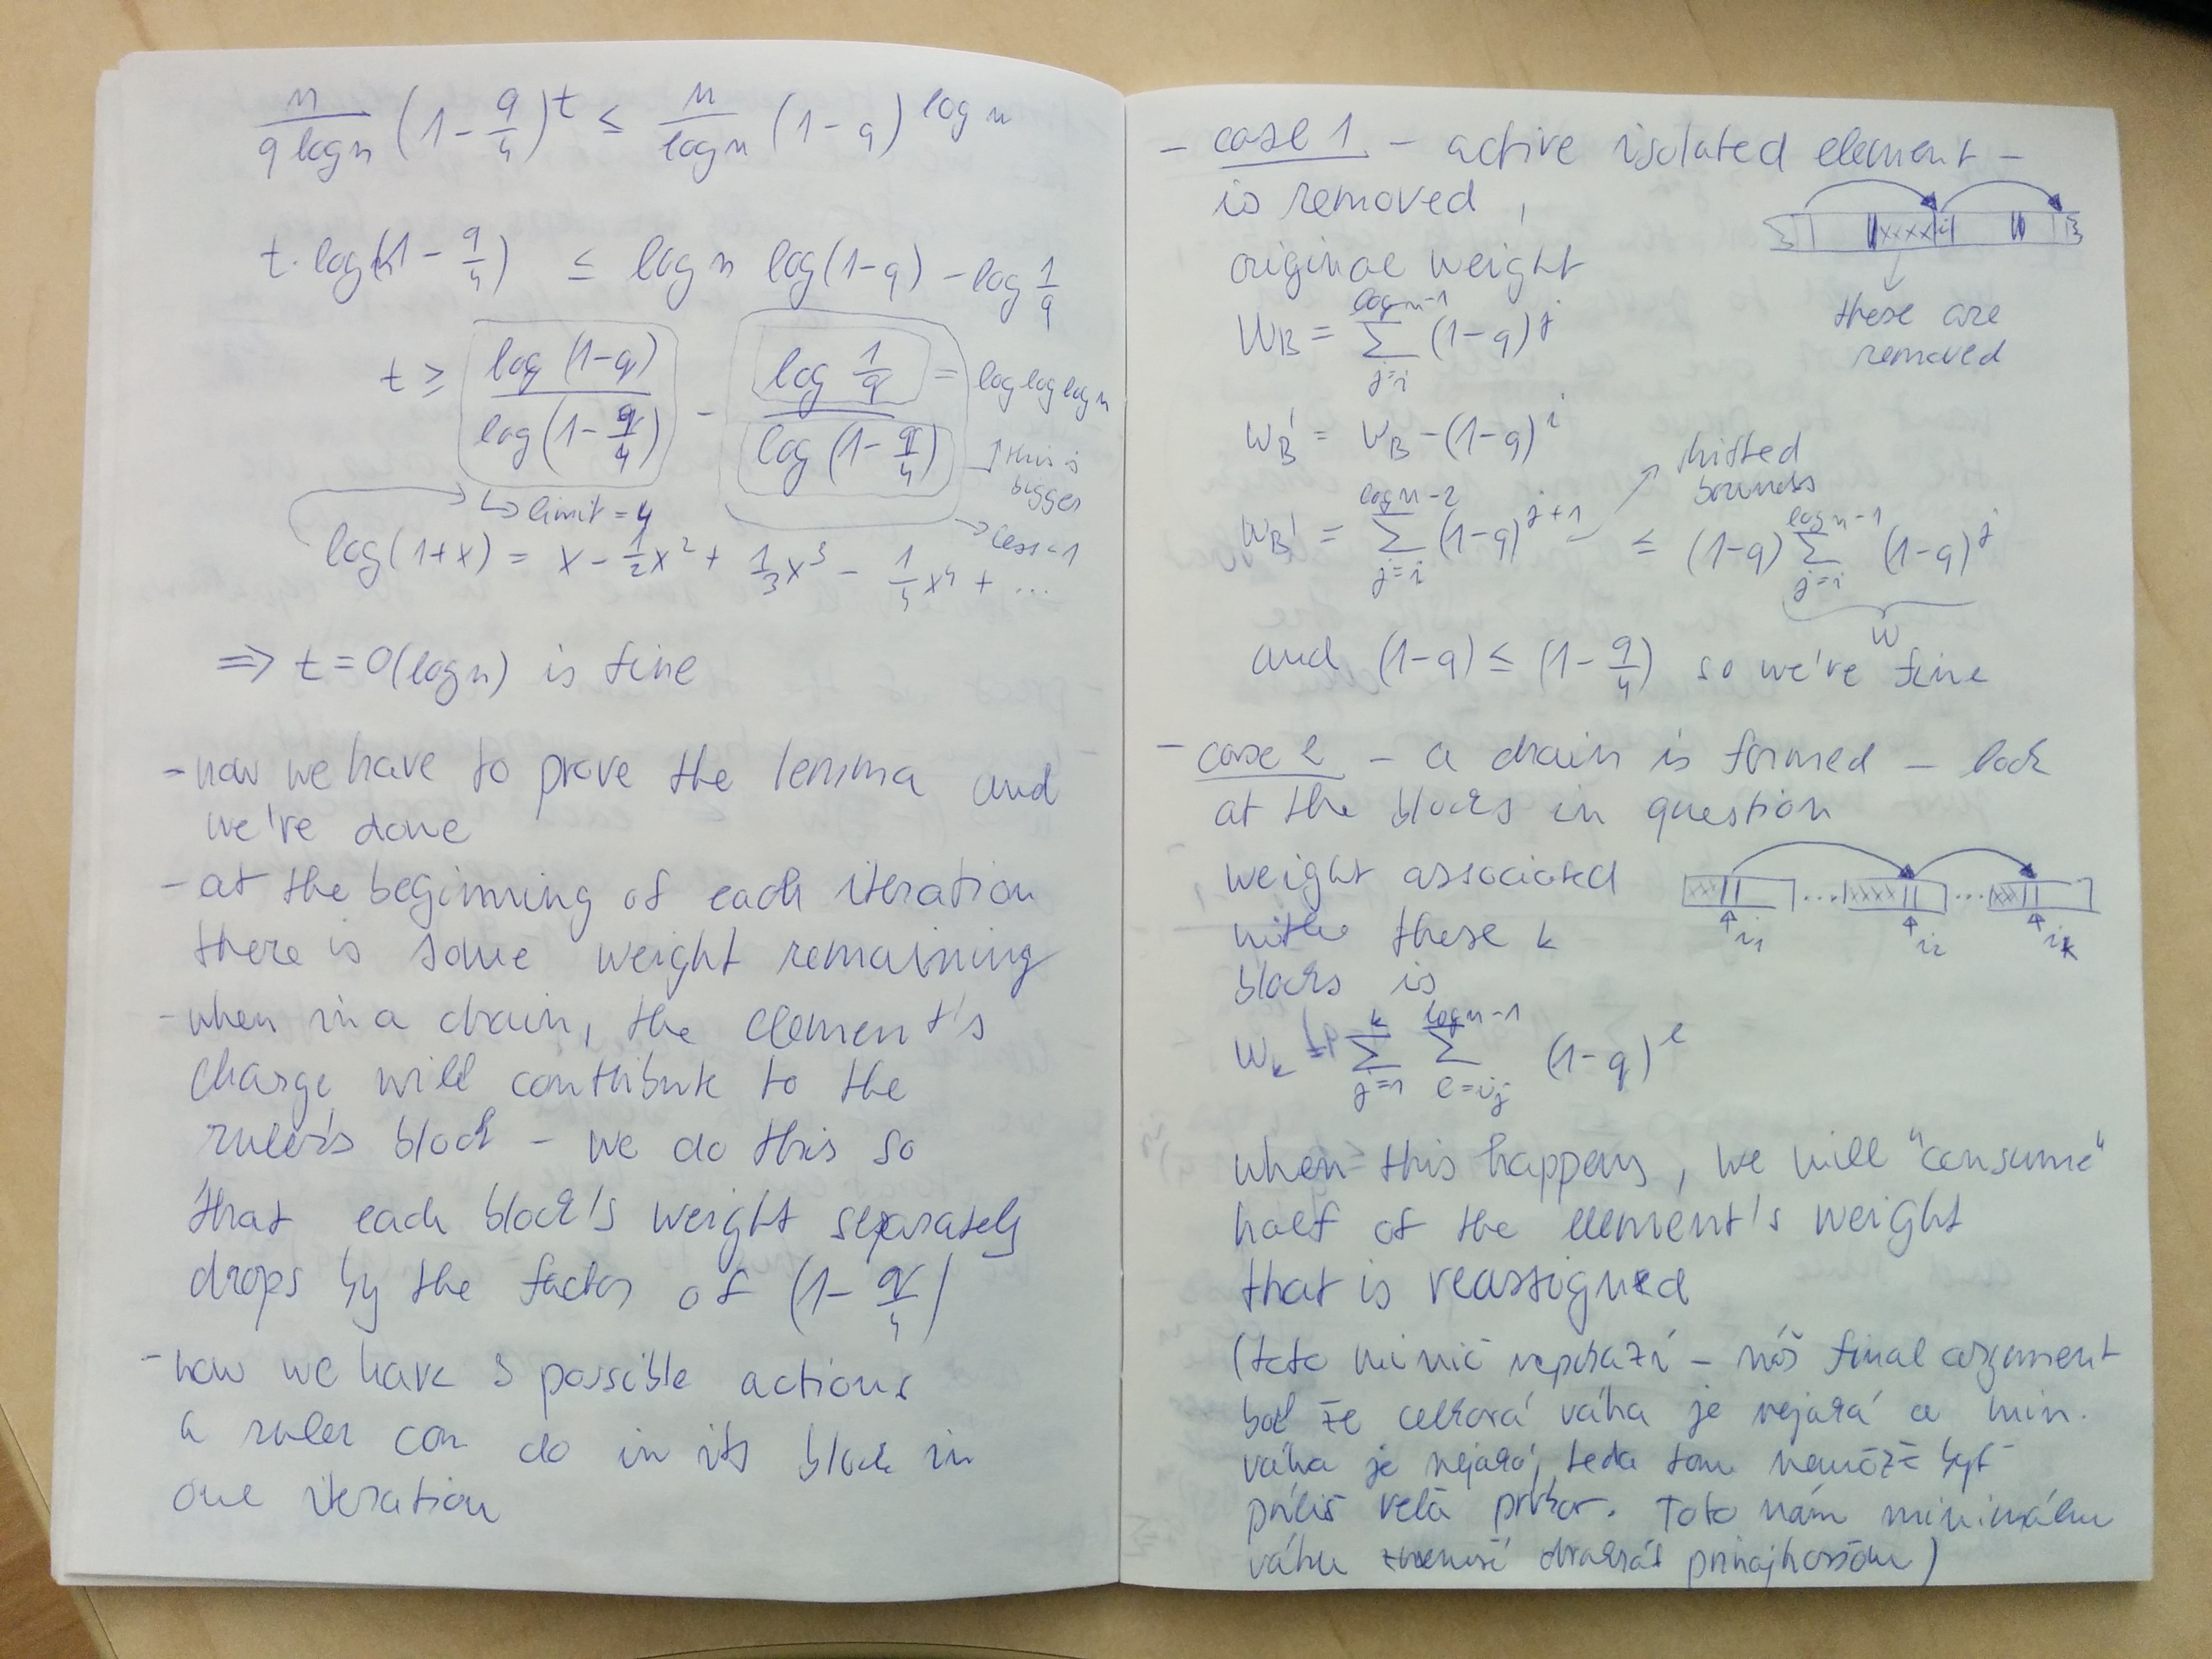 n/(q log n) (1 - q/4)^t ≤ n/(log n) (1-q)^(log n)
t · log(1 - q/4) ≤ log n log(1-q) - log 1/q
t ≥ log(1-q) / log(1 - q/4) - log 1/q / log(1 - q/4)
= log log log n
↑ this is
bigger
↳ limit = 4
→ less 1
log(1+x) = x - 1/2 x² + 1/3 x³ - 1/4 x⁴ + ...
⇒ t = O(log n) is fine
- now we have to prove the lemma and
we're done
- at the beginning of each iteration
there is some weight remaining
- when in a chain, the element's
charge will contribute to the
ruler's block - we do this so
that each block's weight separately
drops by the factor of (1 - q/4)
- now we have 3 possible actions
a ruler can do in its block in
one iteration
- case 1 - active isolated element -
is removed,
these are
removed
original weight
W_B = Σ_{j=i}^{log n-1} (1-q)^j
W_B' = W_B - (1-q)^i
shifted
bounds
W_B' = Σ_{j=i}^{log n-2} (1-q)^{j+1} ≤ (1-q) Σ_{j=i}^{log n-1} (1-q)^j
W
and (1-q) ≤ (1 - q/4) so we're fine
- case 2 - a chain is formed - look
at the blocks in question
weight associated
with these k
blocks is
i₁ i₂ i_k
W_k = Σ_{j=1}^{k} Σ_{l=i_j}^{log n-1} (1-q)^l
when this happens, we will "consume"
half of the element's weight
that is reassigned
(toto nič nepokazí - náš final argument
bol že celková váha je nejaká a min.
váha je nejaká, teda tam nemôže byť
príliš veľa prvkov. Toto nám minimálnu
váhu zmenší dvakrát prinajhoršom)